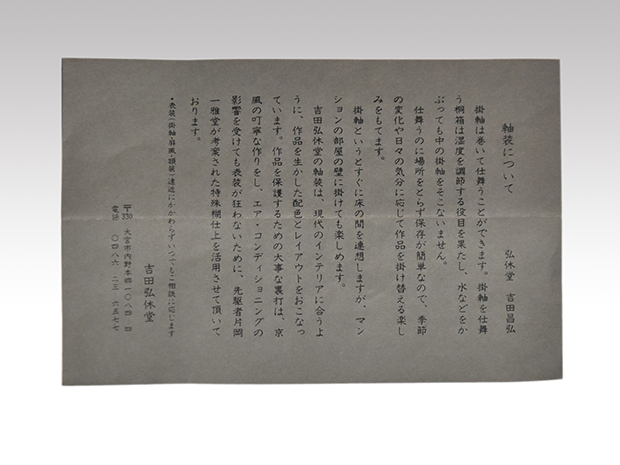 軸装について
弘休堂 吉田昌弘
掛軸は巻いて仕舞うことができます。掛軸を仕舞
う桐箱は湿度を調節する役目を果たし、水などをか
ぶっても中の掛軸をそこないません。
仕舞うのに場所をとらず保存が簡単なので、季節
の変化や日々の気分に応じて作品を掛け替える楽し
みをもてます。
掛軸というとすぐに床の間を連想しますが、マン
ションの部屋の壁に掛けても楽しめます。
吉田弘休堂の軸装は、現代のインテリアに合うよ
うに、作品を生かした配色とレイアウトをおこなっ
ています。作品を保護するための大事な裏打は、京
風の叮寧な作りをし、エア・コンディショニングの
影響を受けても表装が狂わないために、先駆者片岡
一雅堂が考案された特殊糊仕上を活用させて頂いて
おります。
・表装(掛軸・屏風・額装)遠近にかかわらずいつでもご相談に応じます
吉田弘休堂
〒330 大宮市内野本郷一〇八四-四
電話 〇四八六-二三-六五七七